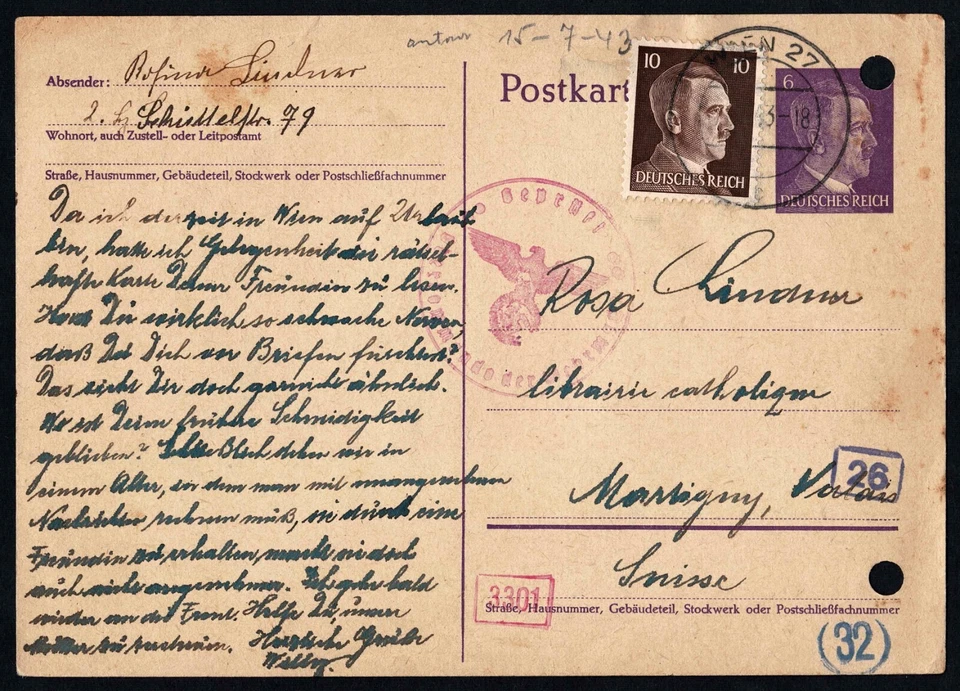 antwo 15-7-43
Absender: Rosina Lindner
2. Schüttelstr. 79
Wohnort, auch Zustell- oder Leitpostamt
Straße, Hausnummer, Gebäudeteil, Stockwerk oder Postschließfachnummer
Da ich derzeit in Wien auf Urlaub
bin, hatte ich Gelegenheit die rätsel-
hafte Karte Deiner Freundin zu lesen.
Hast Du wirklich so schwache Nerven,
daß Du Dich vor Briefen fürchtest?
Das sieht Dir doch garnicht ähnlich.
Wo ist Deine frühere Schneidigkeit
geblieben? Schließlich stehen wir in
einem Alter, in dem man mit unangenehmen
Nachrichten rechnen muß, sie durch eine
Freundin zu erhalten, macht sie doch
auch nicht angenehmer. Ich gehe bald
wieder an die Front. Helfe Du, unsere
Mutter zu
Herzliche Grüße
Willy
Postkart
10 10
DEUTSCHES REICH
WIEN 27
6
DEUTSCHES REICH
Geprüft
Oberkommando der Wehrmacht
Rosa Lindner
librairie catholique
Martigny, Valais
26
Suisse
3301
Straße, Hausnummer, Gebäudeteil, Stockwerk oder Postschließfachnummer
(32)